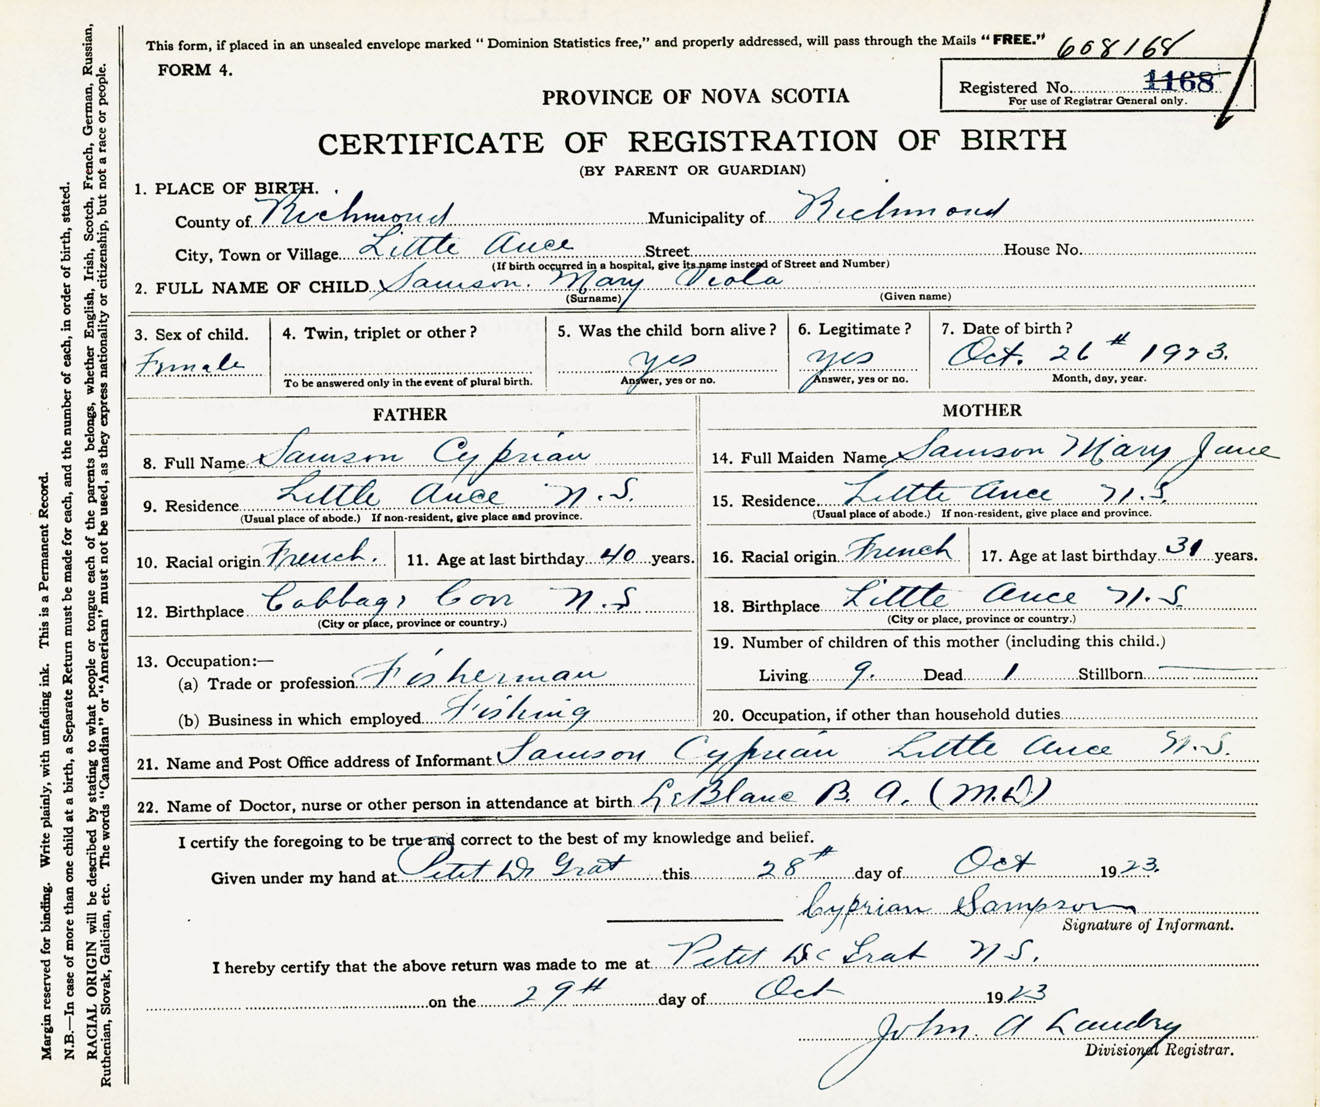 This form, if placed in an unsealed envelope marked “ Dominion Statistics free,” and properly addressed, will pass through the Mails “FREE.” 608168
FORM 4.
Registered No. 1168
For use of Registrar General only.
PROVINCE OF NOVA SCOTIA
CERTIFICATE OF REGISTRATION OF BIRTH
(BY PARENT OR GUARDIAN)
1. PLACE OF BIRTH.
County of Richmond Municipality of Richmond
City, Town or Village Little Ance Street House No.
(If birth occurred in a hospital, give its name instead of Street and Number)
2. FULL NAME OF CHILD Samson. Mary Viola
(Surname) (Given name)
3. Sex of child. 4. Twin, triplet or other? 5. Was the child born alive? 6. Legitimate? 7. Date of birth?
Female yes yes Oct. 26th 1923.
To be answered only in the event of plural birth. Answer, yes or no. Answer, yes or no. Month, day, year.
FATHER MOTHER
8. Full Name Samson Cyprian 14. Full Maiden Name Samson Mary Jane
9. Residence Little Ance N.S. 15. Residence Little Ance N.S.
(Usual place of abode.) If non-resident, give place and province. (Usual place of abode.) If non-resident, give place and province.
10. Racial origin French. 11. Age at last birthday 40 years. 16. Racial origin French 17. Age at last birthday 31 years.
12. Birthplace Cabbage Cove N.S 18. Birthplace Little Ance N.S.
(City or place, province or country.) (City or place, province or country.)
19. Number of children of this mother (including this child.)
13. Occupation:—
(a) Trade or profession Fisherman Living 9. Dead 1 Stillborn
(b) Business in which employed Fishing 20. Occupation, if other than household duties
21. Name and Post Office address of Informant Samson Cyprian Little Ance N.S.
22. Name of Doctor, nurse or other person in attendance at birth LeBlanc B. A. (M.D)
I certify the foregoing to be true and correct to the best of my knowledge and belief.
Given under my hand at Petit De Grat this 28th day of Oct 1923.
Cyprian Sampson
Signature of Informant.
I hereby certify that the above return was made to me at Petit De Grat N.S.
on the 29th day of Oct 1923
John. A Landry
Divisional Registrar.
Margin reserved for binding. Write plainly, with unfading ink. This is a Permanent Record.
N.B.—In case of more than one child at a birth, a Separate Return must be made for each, and the number of each, in order of birth, stated.
RACIAL ORIGIN will be described by stating to what people or tongue each of the parents belongs, whether English, Irish, Scotch, French, German, Russian,
Ruthenian, Slovak, Galician, etc. The words “Canadian” or “American” must not be used, as they express nationality or citizenship, but not a race or people.